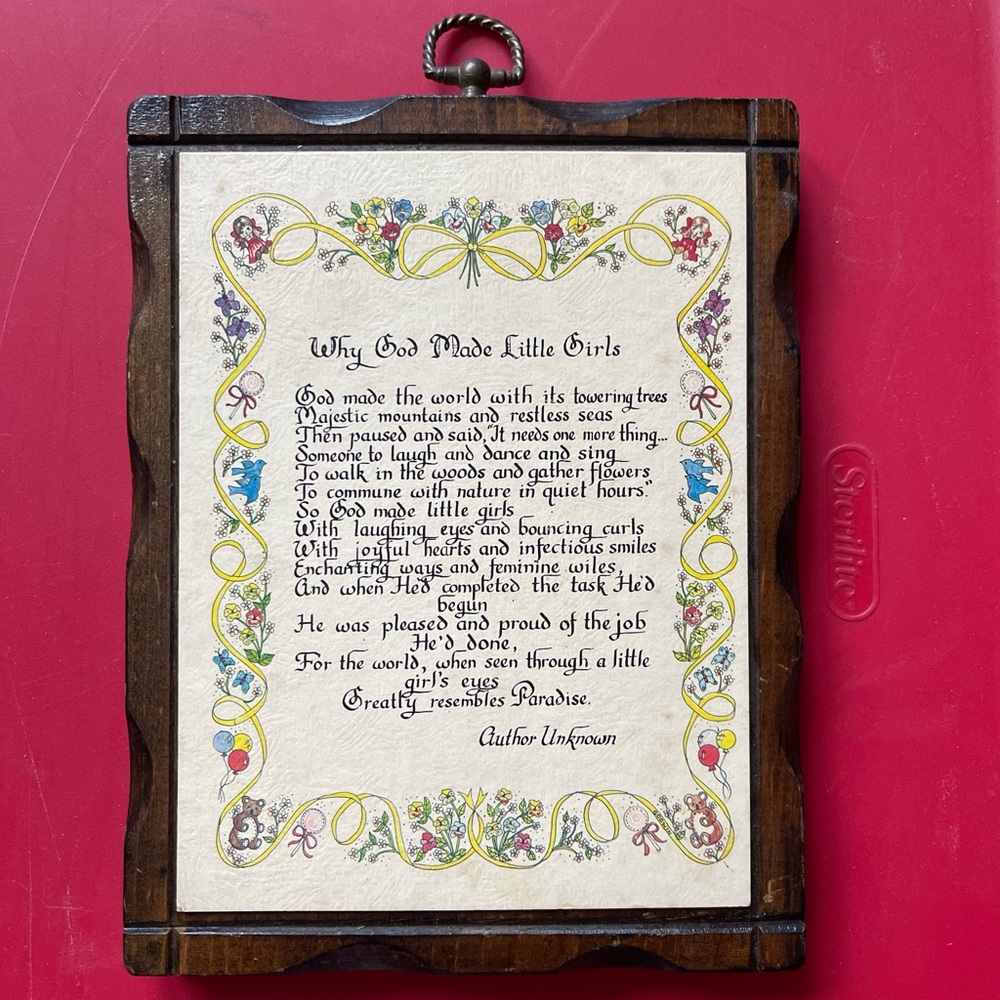 Why God Made Little Girls
God made the world with its towering trees
Majestic mountains and restless seas
Then paused and said, "It needs one more thing...
Someone to laugh and dance and sing
To walk in the woods and gather flowers
To commune with nature in quiet hours."
So God made little girls
With laughing eyes and bouncing curls
With joyful hearts and infectious smiles
Enchanting ways and feminine wiles,
And when He'd completed the task He'd
begun
He was pleased and proud of the job
He'd done,
For the world, when seen through a little
girl's eyes
Greatly resembles Paradise.
Author Unknown
Sterilite